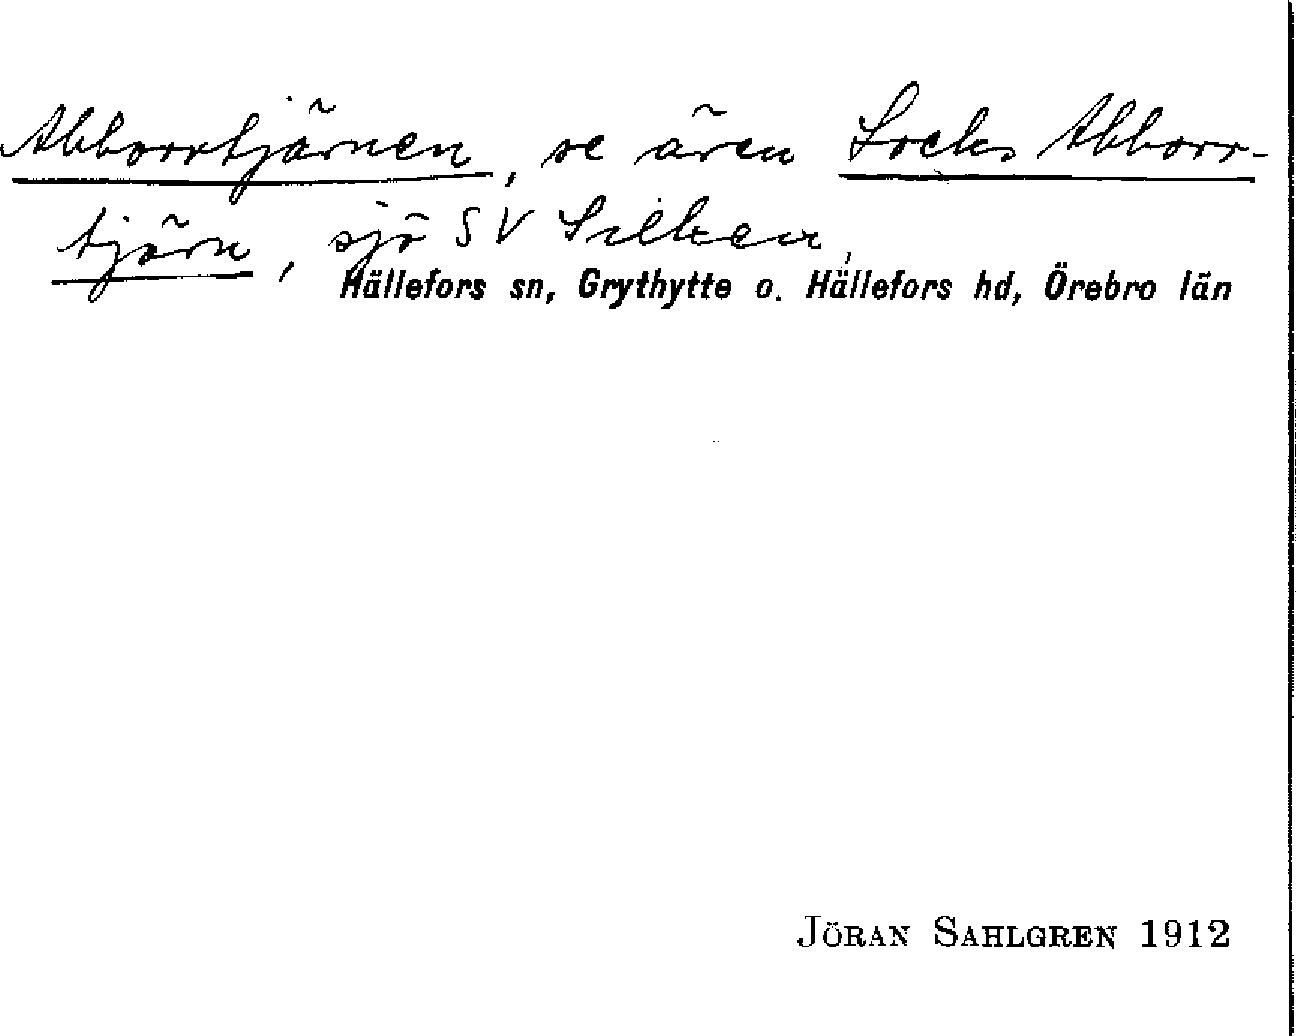 Abborrtjärnen, se även Locks Abborr-
tjärn, sjö SV Silken,
Hällefors sn, Grythytte o. Hällefors hd, Örebro län
JÖRAN SAHLGREN 1912